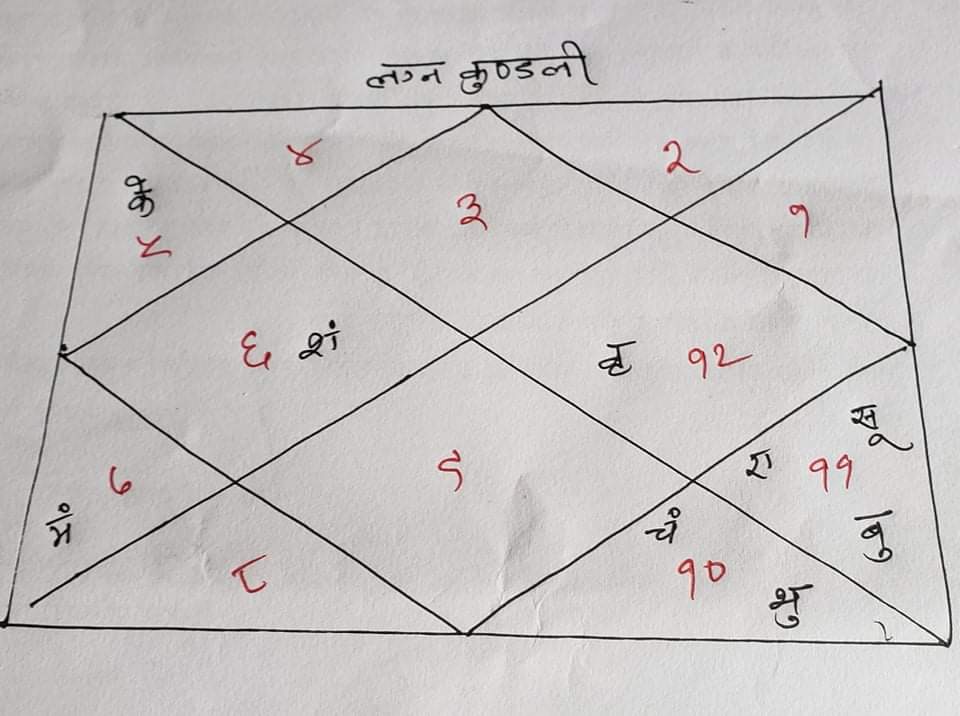 लग्न कुण्डली
४ २
के ३ १
५
६ शं बृ १२
सू
७ ९ रा ११
मं चं बु
८ १० शु